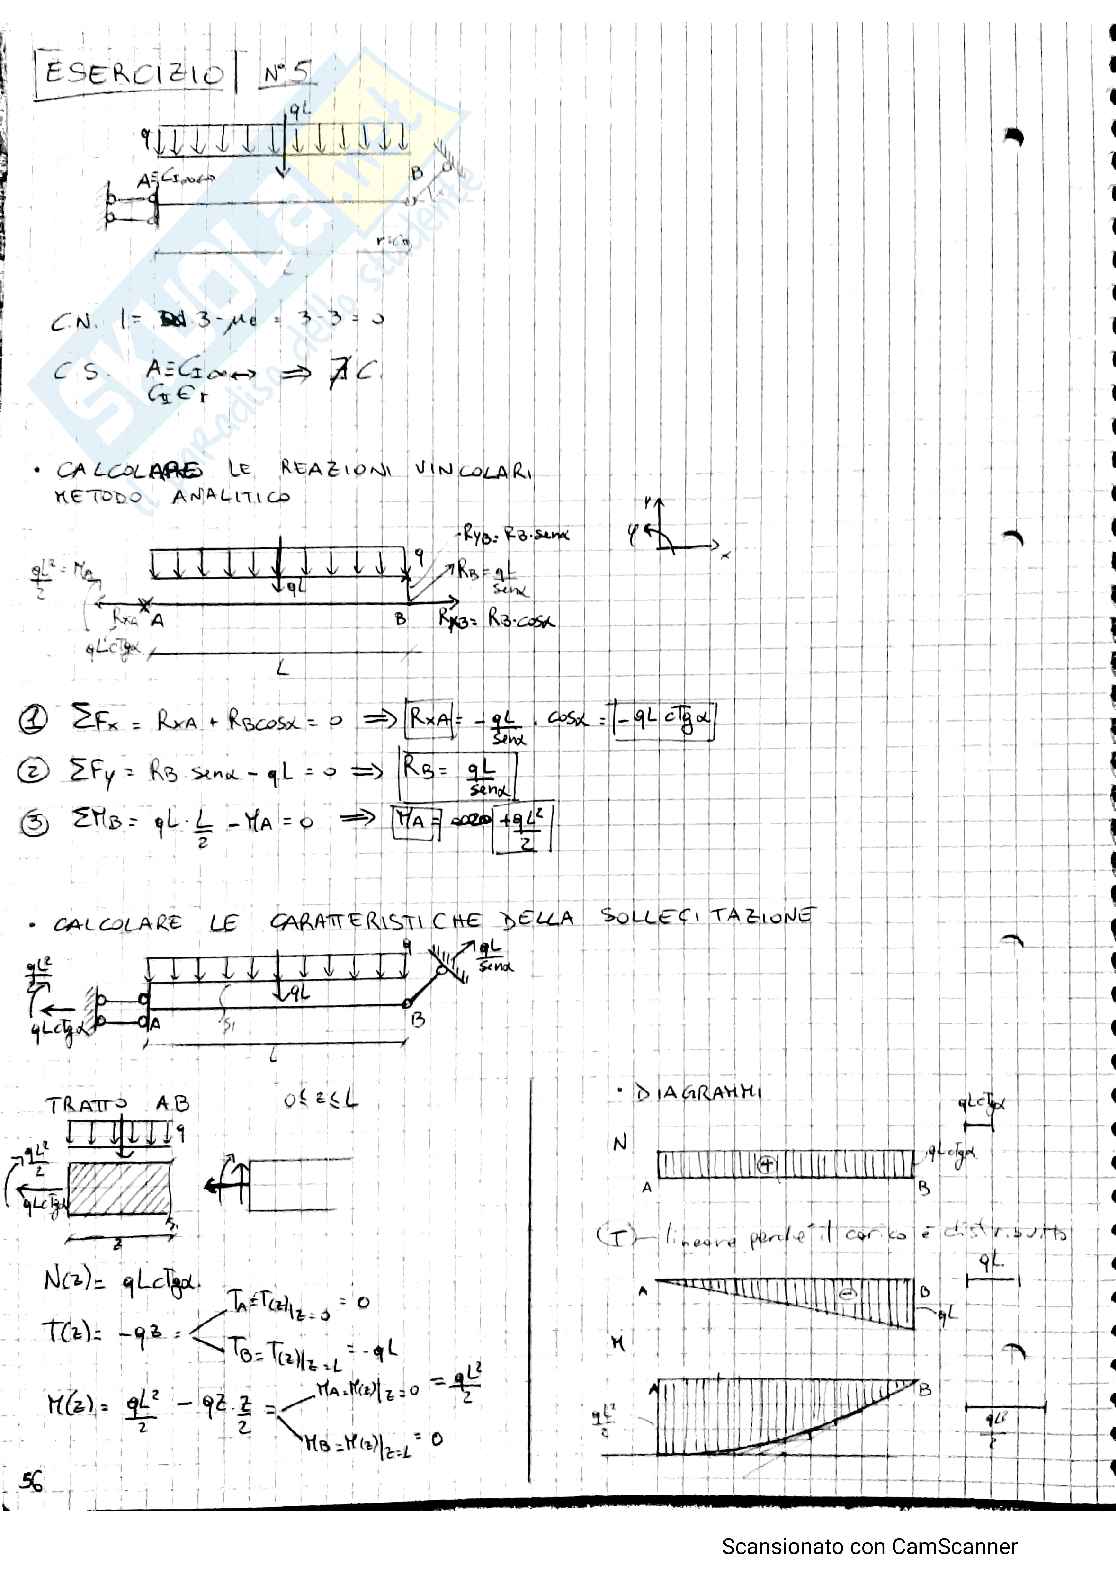 ESERCIZIO N°5
qL
q
A≡C_I∞↔
B
r=C_II
L
C.N. l= 3-μe = 3-3=0
C.S. A≡C_I∞↔ ⇒ ∄ C.
C_II∈r
• CALCOLARE LE REAZIONI VINCOLARI
METODO ANALITICO
RyB= RB·senα
qL²/2 = MA
q
RB= qL/senα
qL
RxA
A
B
RxB= RB·cosα
qLcTgα
L
Y
φ
x
① ΣFx = RxA + RBcosα = 0 ⇒ RxA = -qL/senα · cosα = -qL cTgα
② ΣFy = RB senα - qL = 0 ⇒ RB = qL/senα
③ ΣMB = qL·L/2 - MA = 0 ⇒ MA = +qL²/2
• CALCOLARE LE CARATTERISTICHE DELLA SOLLECITAZIONE
q
qL/senα
qL²/2
qL
qLcTgα
A
S1
B
L
TRATTO AB 0≤z≤L
q
qL²/2
qLcTgα
S1
z
N(z)= qLcTgα
T(z)= -qz =
TA=T(z)|z=0 = 0
TB=T(z)|z=L = -qL
M(z)= qL²/2 - qz·z/2 =
MA=M(z)|z=0 = qL²/2
MB=M(z)|z=L = 0
56
• DIAGRAMMI
qLcTgα
N
+
qLcTgα
A
B
(T) lineare perché il carico è distribuito
qL
A
-
B
qL
M
A
B
qL²/2
qL²/2
Scansionato con CamScanner
SKUOLA.net
il paradiso dello studente